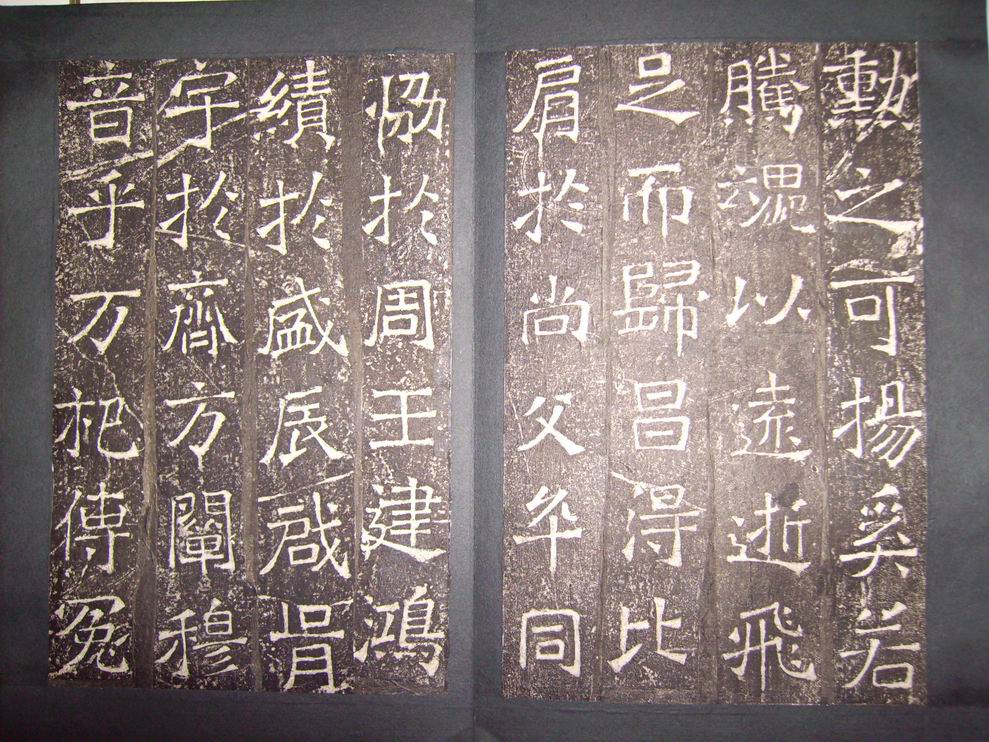 勳之可揚奚若
騰以遠逝飛
足而歸昌得比
肩於尚父卒同
協於周王建鴻
績於盛辰啟胥
宇於齊方闡穆
音乎万祀傳冤